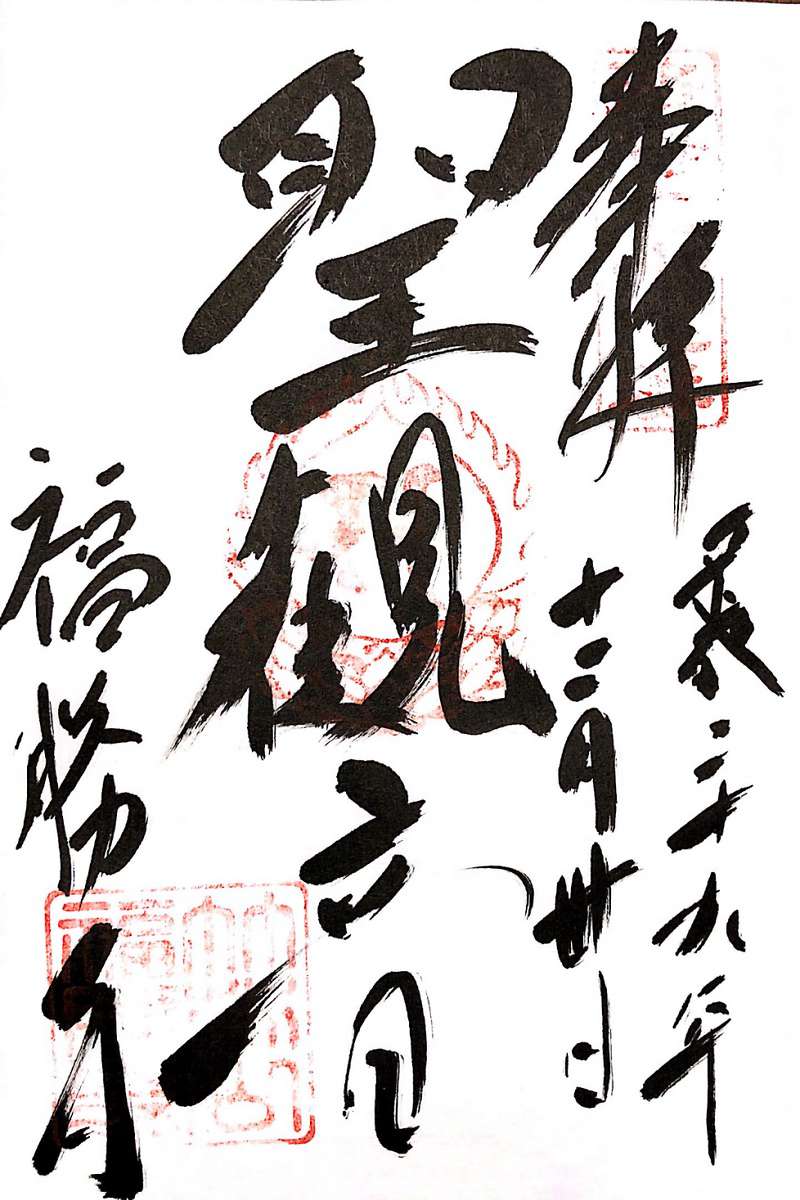 奉拝
平成二十九年
十二月卅日
聖観音
福勝寺